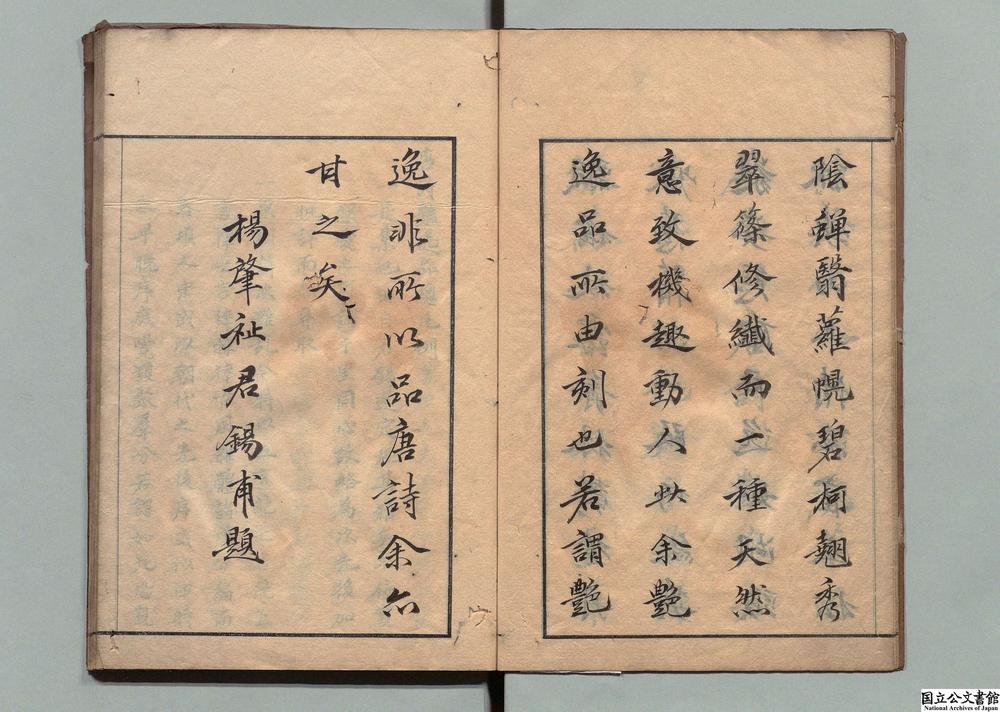 陰鮮翳蘿幌碧柯翹秀
翠篠修纖而一種天然
意致機趣動人此余艷
逸品所由刻也若謂艷
逸非所以品唐詩余亦
甘之矣
楊肇祉君錫甫題
国立公文書館
National Archives of Japan